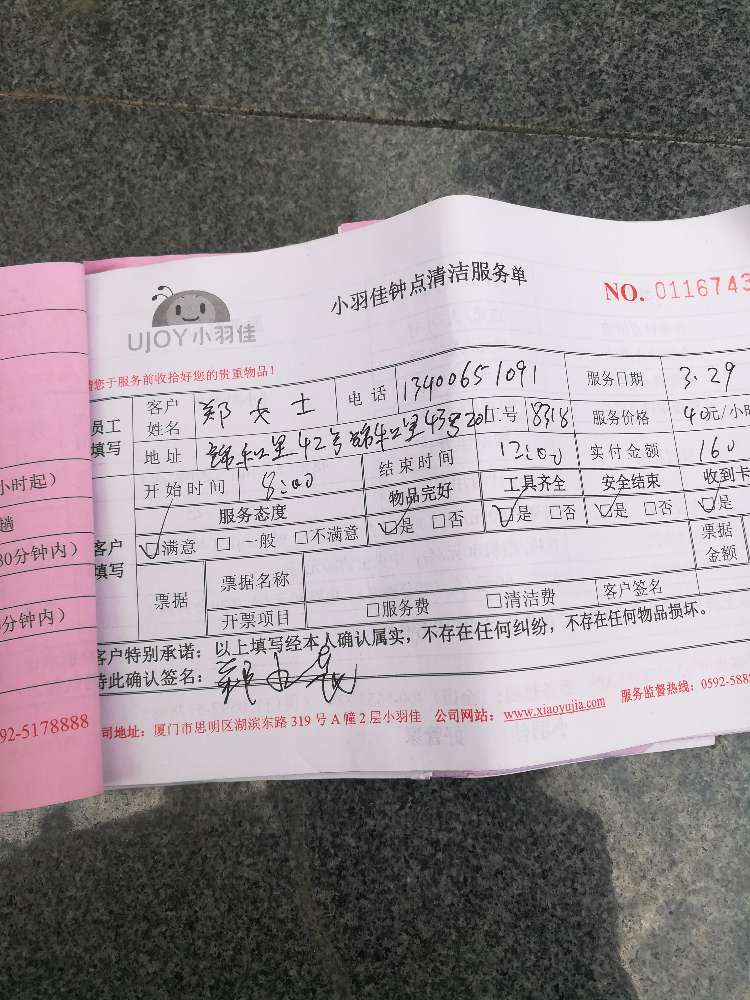 小羽佳钟点清洁服务单
NO. 0116743
UJOY小羽佳
请您于服务前收拾好您的贵重物品！
员工填写 客户姓名 郑女士 电话 13400651091 服务日期 3.29
地址 42号 43号201 工号 8318 服务价格 40元/小
开始时间 8:00 结束时间 12:00 实付金额 160
客户填写 服务态度 物品完好 工具齐全 安全结束 收到卡
☑满意 □一般 □不满意 ☑是 □否 ☑是 □否 ☑是 □否 ☑是
票据 票据名称 票据金额
开票项目 □服务费 □清洁费 客户签名
客户特别承诺：以上填写经本人确认属实，不存在任何纠纷，不存在任何物品损坏。
特此确认签名：
公司地址：厦门市思明区湖滨东路 319 号 A 幢 2 层小羽佳 公司网站：www.xiaoyujia.com 服务监督热线：0592-5888
小时起）
趟
30分钟内）
分钟内）
92-5178888